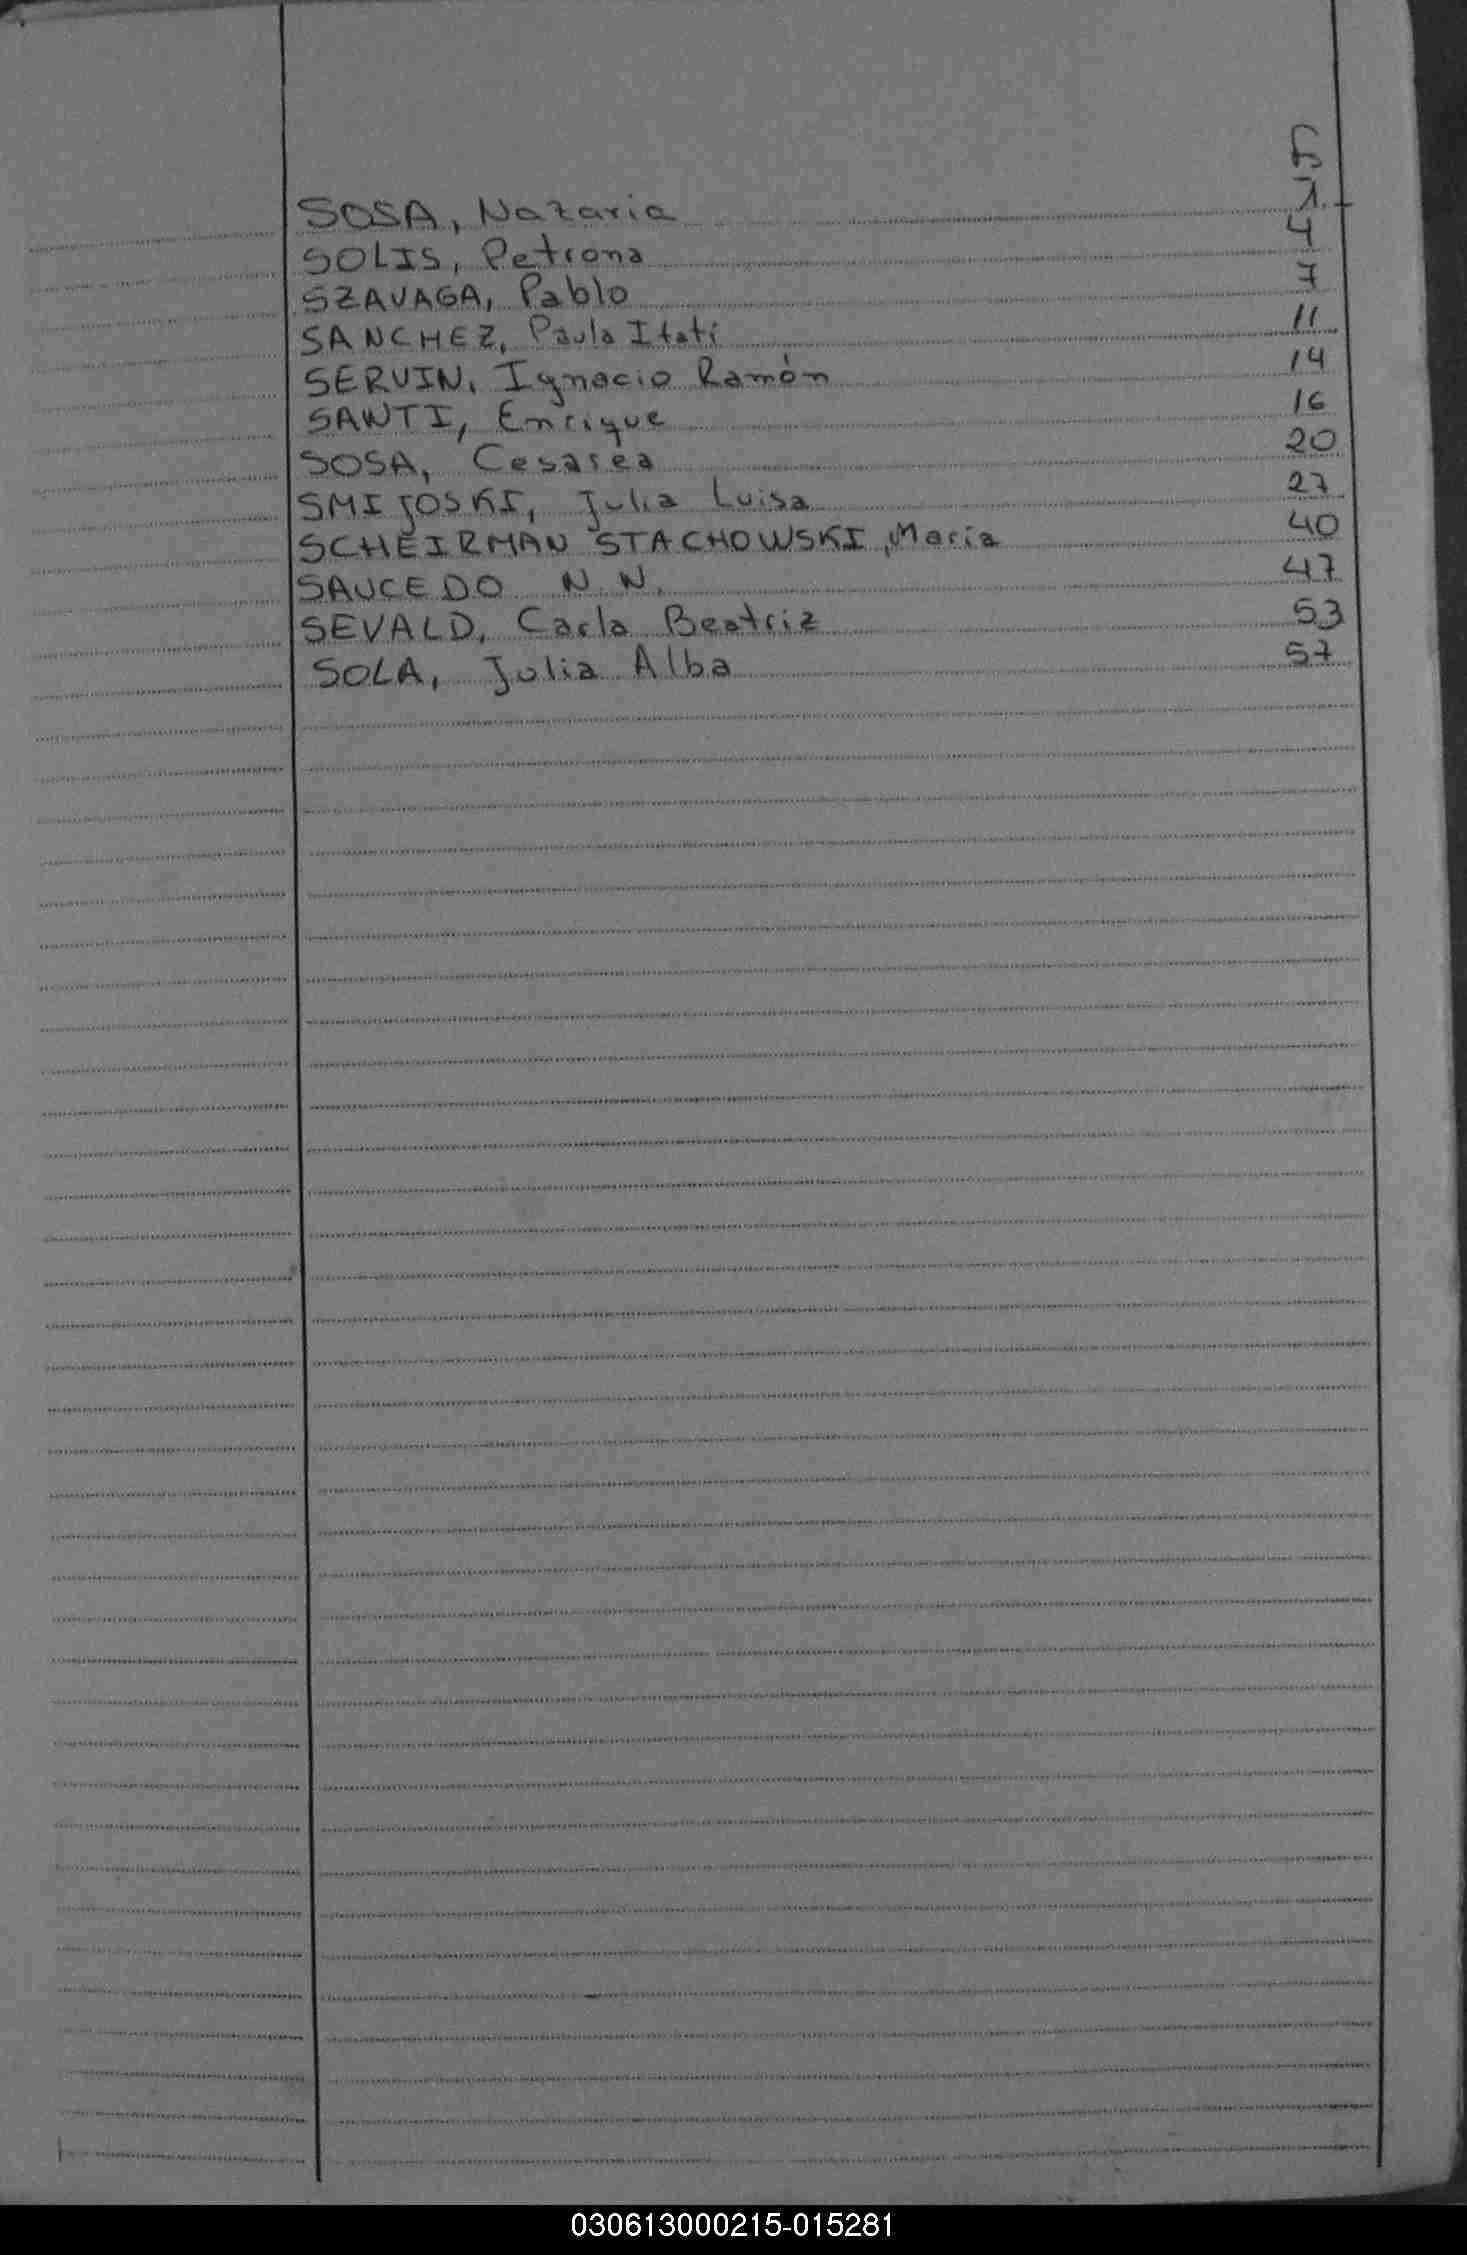 Fº
SOSA, Nazaria 1
SOLIS, Petrona 4
SZAVAGA, Pablo 7
SANCHEZ, Paula Itatí 11
SERVIN, Ignacio Ramón 14
SANTI, Enrique 16
SOSA, Cesarea 20
SMIJOSKI, Julia Luisa 27
SCHEIRMAN STACHOWSKI, Maria 40
SAUCEDO N.N. 47
SEVALD, Carla Beatriz 53
SOLA, Julia Alba 57
030613000215-015281